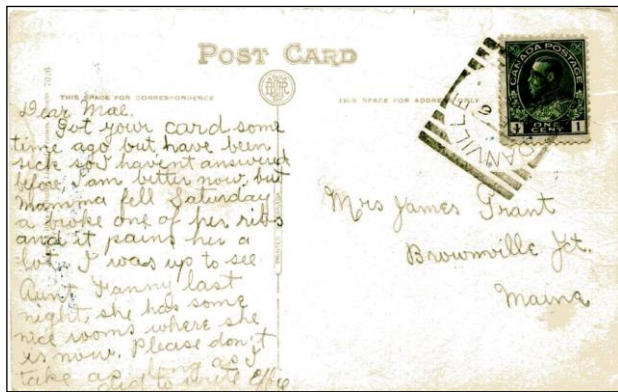 POST CARD
THIS SPACE FOR CORRESPONDENCE
THIS SPACE FOR ADDRESS ONLY
CANADA POSTAGE
1 ONE CENT 1
Dear Mae.
Got your card some
time ago but have been
sick so I havent answerd
before, I am better now, but
mamma fell Saturday
a broke one of her ribs
and it pains her a
lot. I was up to see
Aunt Fanny last
night, she has some
nice rooms where she
is now. Please don't
take as long as I
did to write Effie
Mrs James Grant
Brownville Jct.
Maine